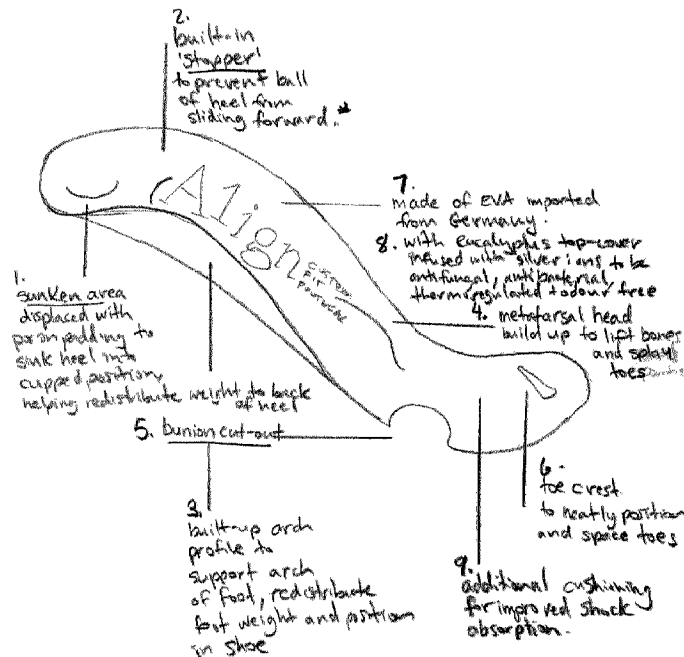 2.
built-in
'stopper'
to prevent ball
of heel from
sliding forward..*
Align
CUSTOM
FIT
FOOTWEAR
7.
made of EVA imported
from Germany.
8. with eucalyptus top-cover
infused with silver ions to be
antifungal, antibacterial,
thermoregulated + odour free
4. metatarsal head
build up to lift bones
and splay
toes
1.
sunken area
displaced with
poron padding to
sink heel into
cupped position,
helping redistribute weight to back
of heel
5. bunion cut-out
6.
toe crest
to neatly position
and space toes
3.
built-up arch
profile to
support arch
of foot, redistribute
foot weight and position
in shoe
9.
additional cushioning
for improved shock
absorption.